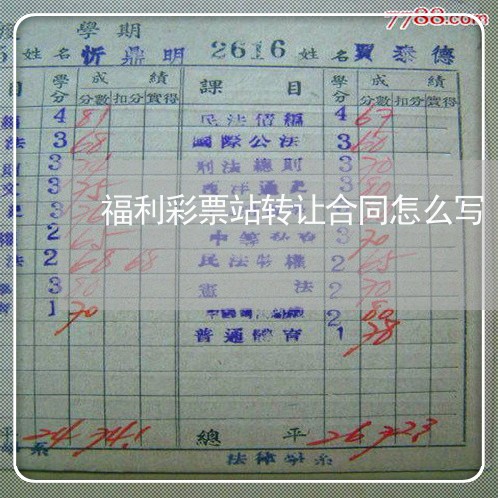 7788.com
學期
姓名 忻鼎明 2616 姓名 賈泰德
目 學分 成績 課目 學分 成績
分數 扣分 實得 分數 扣分 實得
4 81 民法債編 4 67
法 3 68 國際公法 3 60
3 刑法總則 3 70
文 3 75 西洋通史 3 80
福利彩票站转让合同怎么写
2 65 3 70
法 2 68 68 民法物權 2 65
3 80 憲法 2 70
1 70 2 80
普通體育 1 78
平 24 74.1 總平 26 72.3
系 法律學系